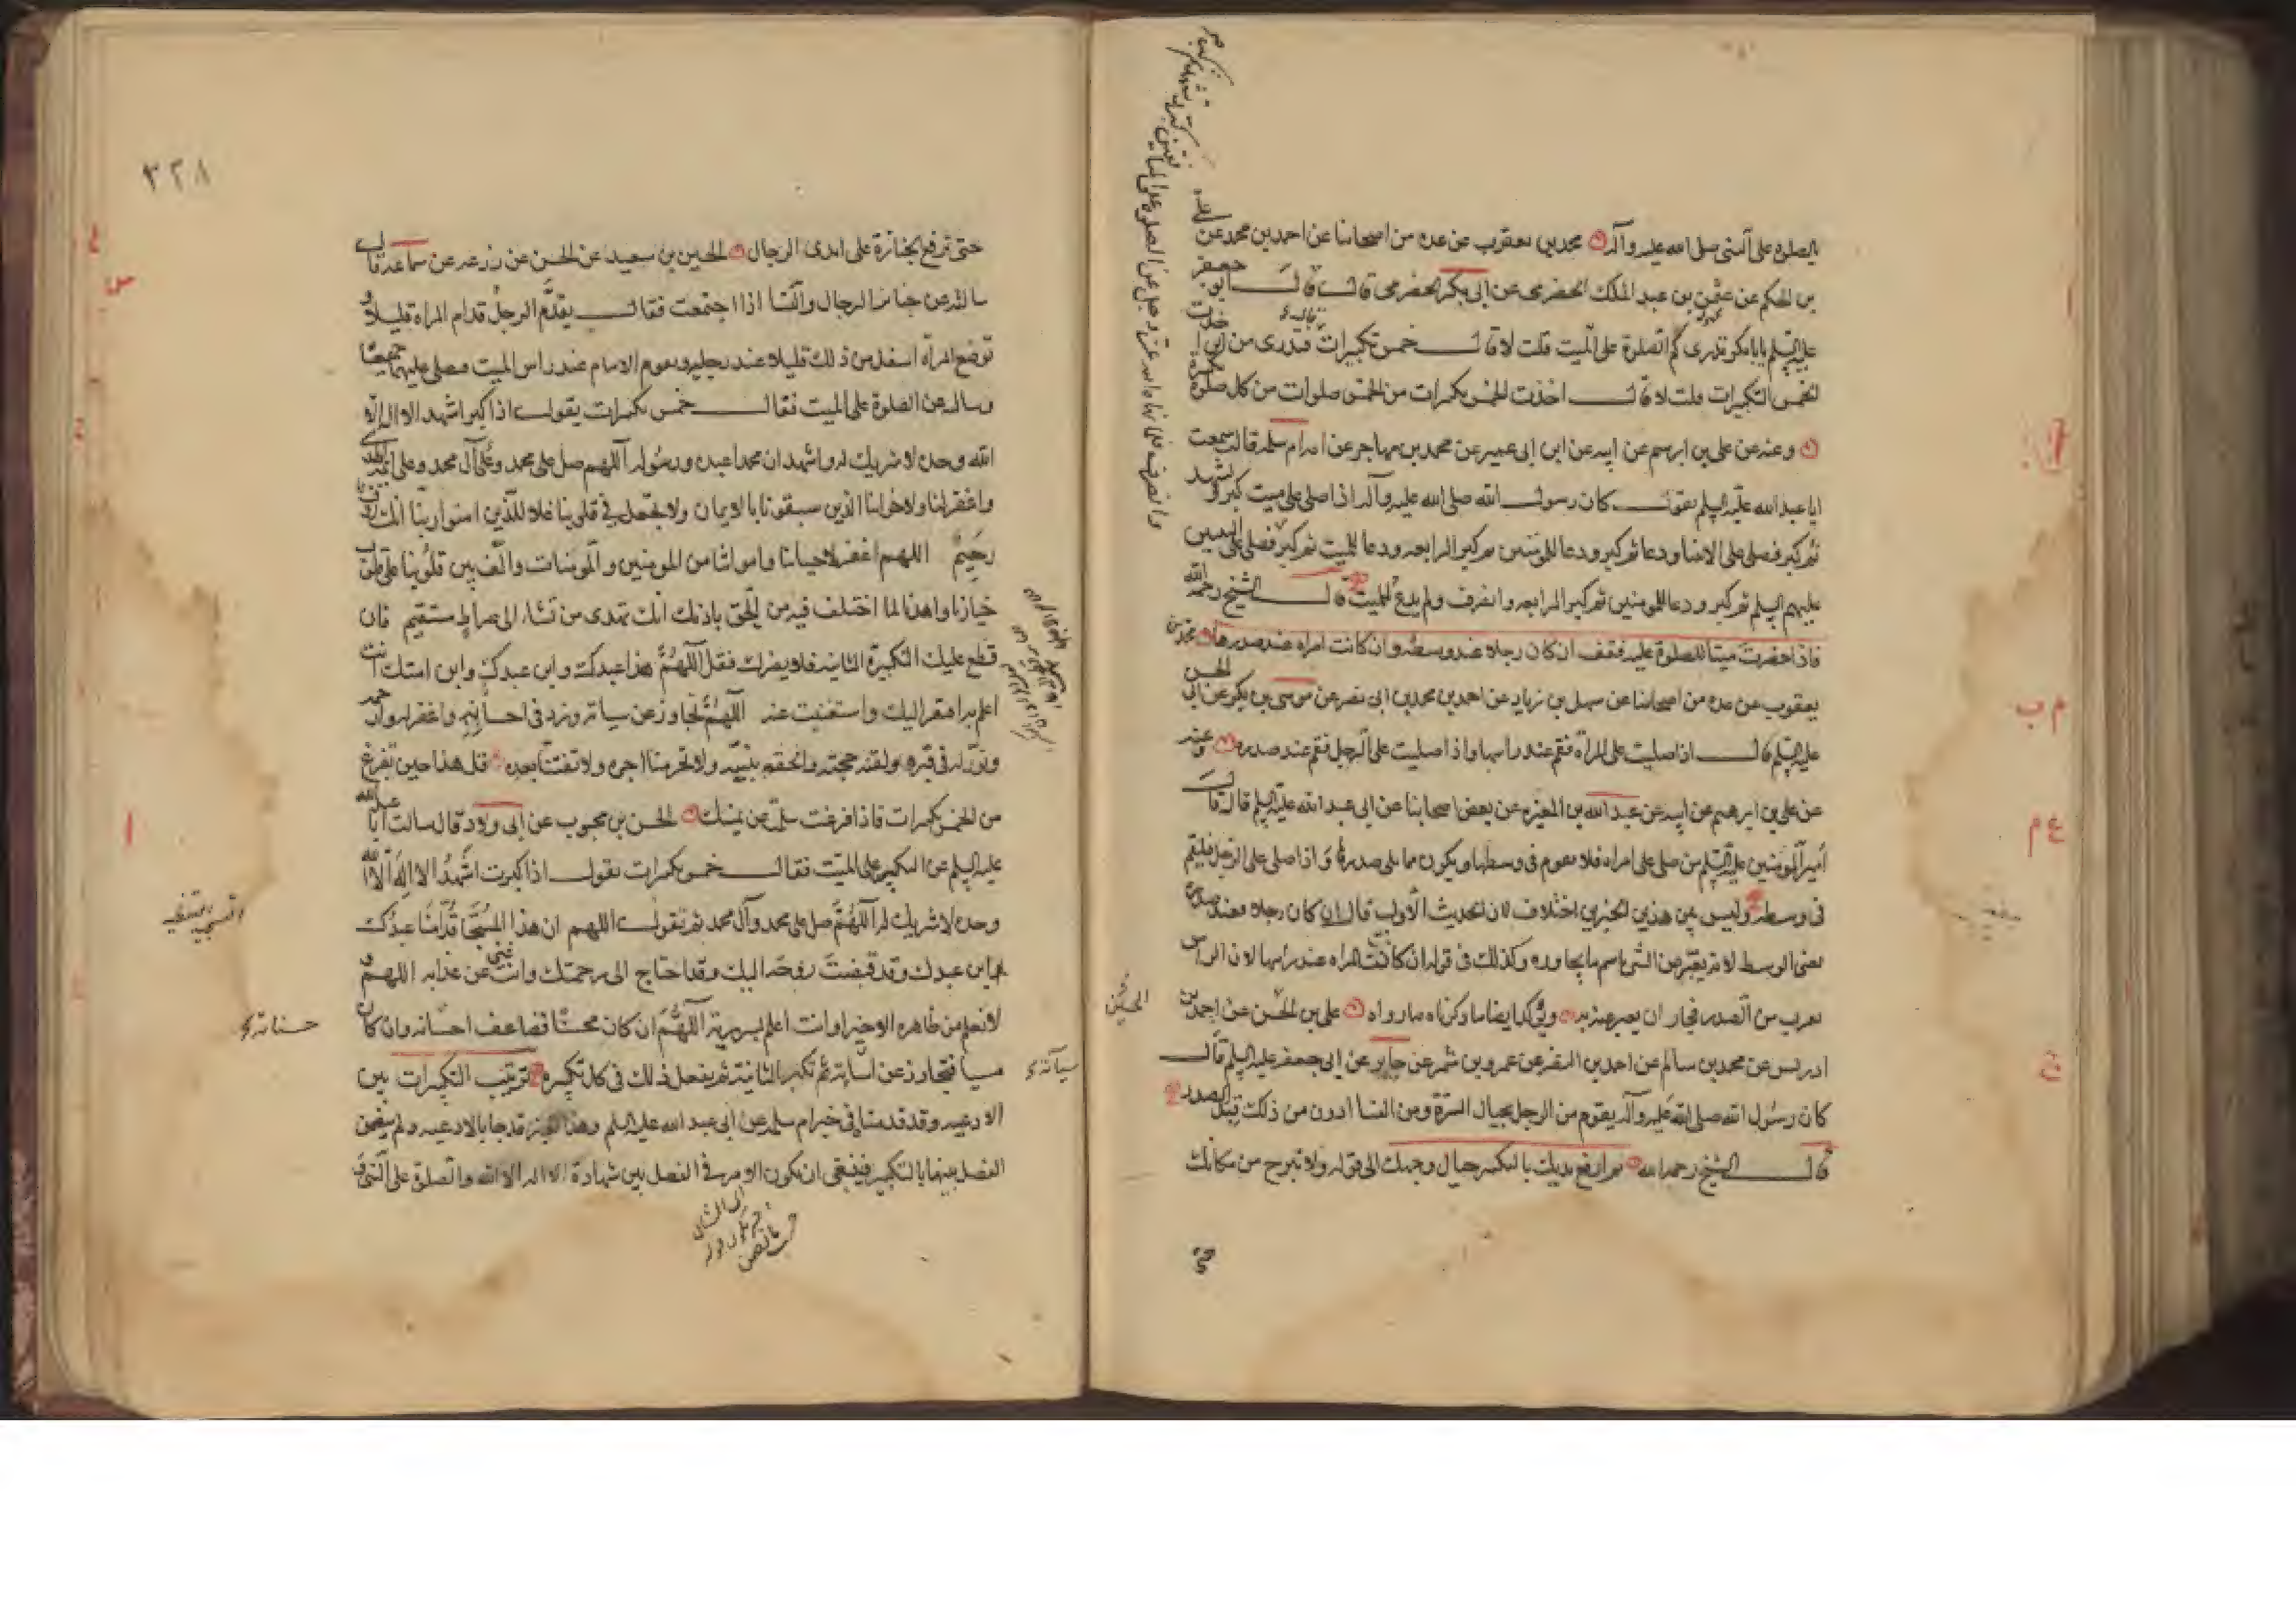 الصلوة على النبي صلى الله عليه وآله محمد بن يعقوب عن عدة من اصحابنا عن احمد بن محمد عن على
بن الحكم عن عثمن بن عبد الملك الحضرمى عن ابى بكر الحضرمى قال قال ابو جعفر
عليه السلم يا بابكر تدرى كم الصلوة على الميت قلت لا قال خمس تكبيرات فتدرى من اين اخذت
الخمس التكبيرات قلت لا قال اخذت الخمس تكبيرات من الخمس صلوات من كل صلوة تكبيرة
وعنه عن على بن ابرهيم عن ابيه عن ابن ابى عمير عن محمد بن مهاجر عن امه ام سلمه قالت سمعت
ابا عبد الله عليه السلم يقول كان رسول الله صلى الله عليه وآله اذا صلى على ميت كبر وتشهد
ثم كبر فصلى على الانبيا ودعا ثم كبر ودعا للمؤمنين ثم كبر الرابعه ودعا للميت ثم كبر فصلى على النبيين
عليهم السلم ثم كبر ودعا للمومنين ثم كبر الرابعه وانصرف ولم يدع للميت قال الشيخ رحمه الله
فاذا حضرت ميتا للصلوة عليه فقف ان كان رجلا عند وسطه وان كانت امراه عند صدرها محمد بن
يعقوب عن عده من اصحابنا عن سهل بن زياد عن احمد بن محمد بن ابى نصر عن موسى بن بكر عن ابى الحسن
عليه السلم قال اذا صليت على المرأة فقم عند راسها واذا صليت على الرجل فقم عند صدره وعنه
عن على بن ابرهيم عن ابيه عن عبد الله بن المغيره عن بعض اصحابنا عن ابى عبد الله عليه السلم قال قال
أمير المومنين عليه السلم من صلى على امراه فلا يقوم فى وسطها ويكون مما يلى صدرها واذا صلى على الرجل فليقم
فى وسطه وليس بين هذين الخبرين اختلاف لان الحديث الأول قال ان كان رجلا فعند صدره
يعنى الوسط لانه يعبر عن الشى باسم ما يجاوره وكذلك فى قوله ان كانت امراه عند راسها لان الراس
يقرب من الصدر فجاز ان يعبر عنه به ويؤكد ايضا ما ذكرناه ما رواه على بن الحسن عن احمد بن
ادريس عن محمد بن سالم عن احمد بن النضر عن عمرو بن شمر عن جابر عن ابى جعفر عليه السلم قال
كان رسول الله صلى الله عليه وآله يقوم من الرجل بحيال السرة ومن النسا ادون من ذلك قبل الصدر
قال الشيخ رحمه الله ثم ارفع يديك بالتكبير حيال وجهك الى قوله ولا تبرح من مكانك
الحسين
حتى
٣٢٨
حتى ترفع الجنازة على ايدى الرجال الحسين بن سعيد عن الحسن عن زرعه عن سماعه قال
سالته عن جنائز الرجال والنسا اذا اجتمعت فقال يقدم الرجل قدام المراه قليلا و
توضع المرأة اسفل من ذلك قليلا عند رجليه ويقوم الامام عند راس الميت فيصلى عليهما جميعا
وساله عن الصلوة على الميت فقال خمس تكبيرات يقول اذا كبر اشهد الا اله الا
الله وحده لا شريك له واشهد ان محمدا عبده ورسوله اللهم صل على محمد وعلى آل محمد وعلى ائمة الهدى
واغفر لنا ولاخواننا الذين سبقونا بالايمان ولا تجعل فى قلوبنا غلا للذين امنوا ربنا انك رؤف
رحيم اللهم اغفر لاحيائنا وامواتنا من المومنين والمومنات والف بين قلوبنا على قلوب
خيارنا واهدنا لما اختلف فيه من الحق باذنك انك تهدى من تشاء الى صراط مستقيم فان
قطع عليك التكبيرة الثانيه فلا يضرك فقل اللهم هذا عبدك وابن عبدك وابن امتك انت
اعلم به افتقر اليك واستغنيت عنه اللهم تجاوز عن سياته وزد فى احسانه واغفر له وارحمه
ونور له فى قبره ولقنه حجته والحقه بنبيه ولا تحرمنا اجره ولا تفتنا بعده قل هذا حين تفرغ
من الخمس تكبيرات فاذا فرغت سلمت عن يمينك الحسن بن محبوب عن ابى ولاد قال سالت أبا عبد الله
عليه السلم عن التكبير على الميت فقال خمس تكبيرات تقول اذا كبرت اشهد الا اله الا الله
وحده لا شريك له اللهم صل على محمد وآل محمد ثم تقول اللهم ان هذا المسجى قدامنا عبدك
وابن عبدك وقد قبضت روحه اليك وقد احتاج الى رحمتك وانت غنى عن عذابه اللهم و
لا نعلم من ظاهره الا خيرا وانت اعلم بسريرته اللهم ان كان محسنا فضاعف احسانه وان كان
مسيا فتجاوز عن اساءته ثم تكبر الثانية ثم تفعل ذلك فى كل تكبيرة ترتيب التكبيرات بين
الادعيه وقد قدمناه فى خبر ام سلمه عن ابى عبد الله عليه السلم وهذا الخبر قد جا بالادعيه ولم يتضمن
الفصل بينها بالتكبير فينبغى ان يكون الامر فى الفصل بين شهادة الا اله الا الله والصلوة على النبى
حسناته
سيآته